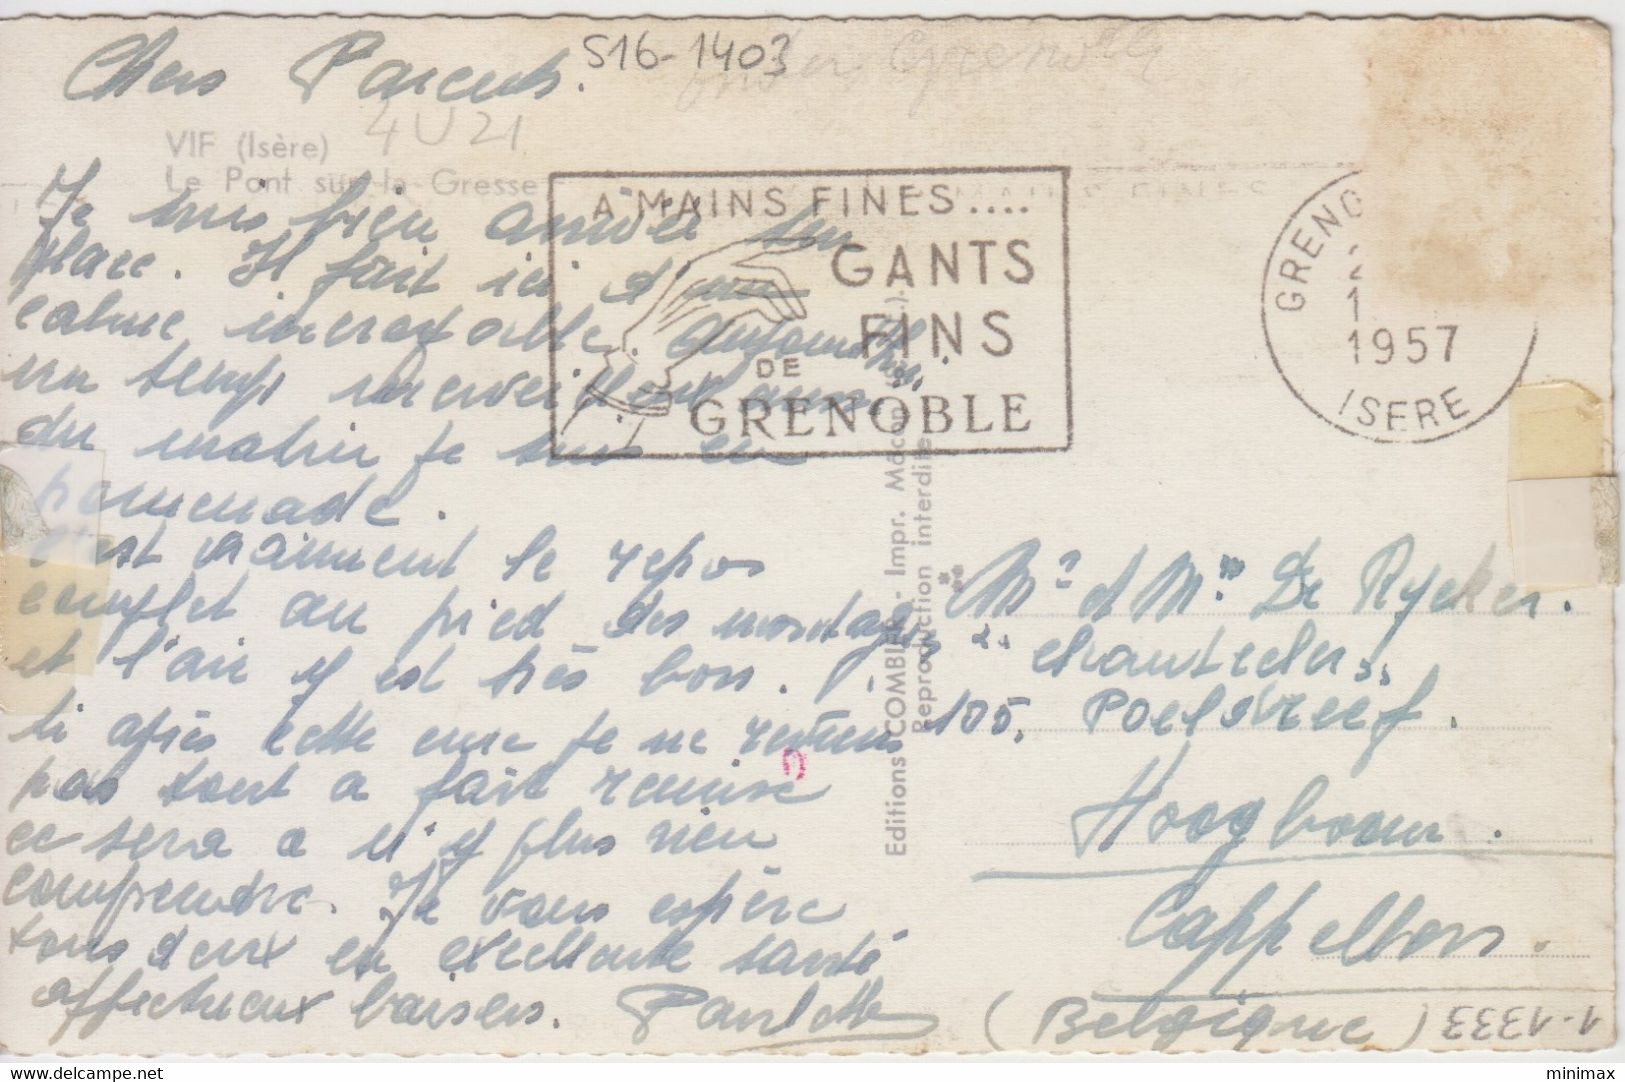 S16-1403
Chers Parents.
4U21
VIF (Isère)
Le Pont sur la Gresse
A MAINS FINES....
GANTS
FINS
DE
GRENOBLE
GRENO
2
1
1957
ISERE
Je suis bien arrivée sur
place. Il fait ici d'un
calme incroyable.
un temps merveilleux aussi
du matin je suis en
promenade.
c'est vraiment le repos
complet au pied des montagnes
et l'air y est très bon.
Si après cette cure je ne reviens
pas tout a fait remise
ce sera a n'y plus rien
comprendre. Je vous espère
tous deux en excellente santé
affectueux baisers. Paulette
Editions COMBIER - Impr. Macon
Reproduction interdite
Mr et Mme De Rycker.
chantecler
105. Poelsdreef.
Hoogboom.
Cappellen.
(Belgique)
1-1333
delcampe.net
minimax